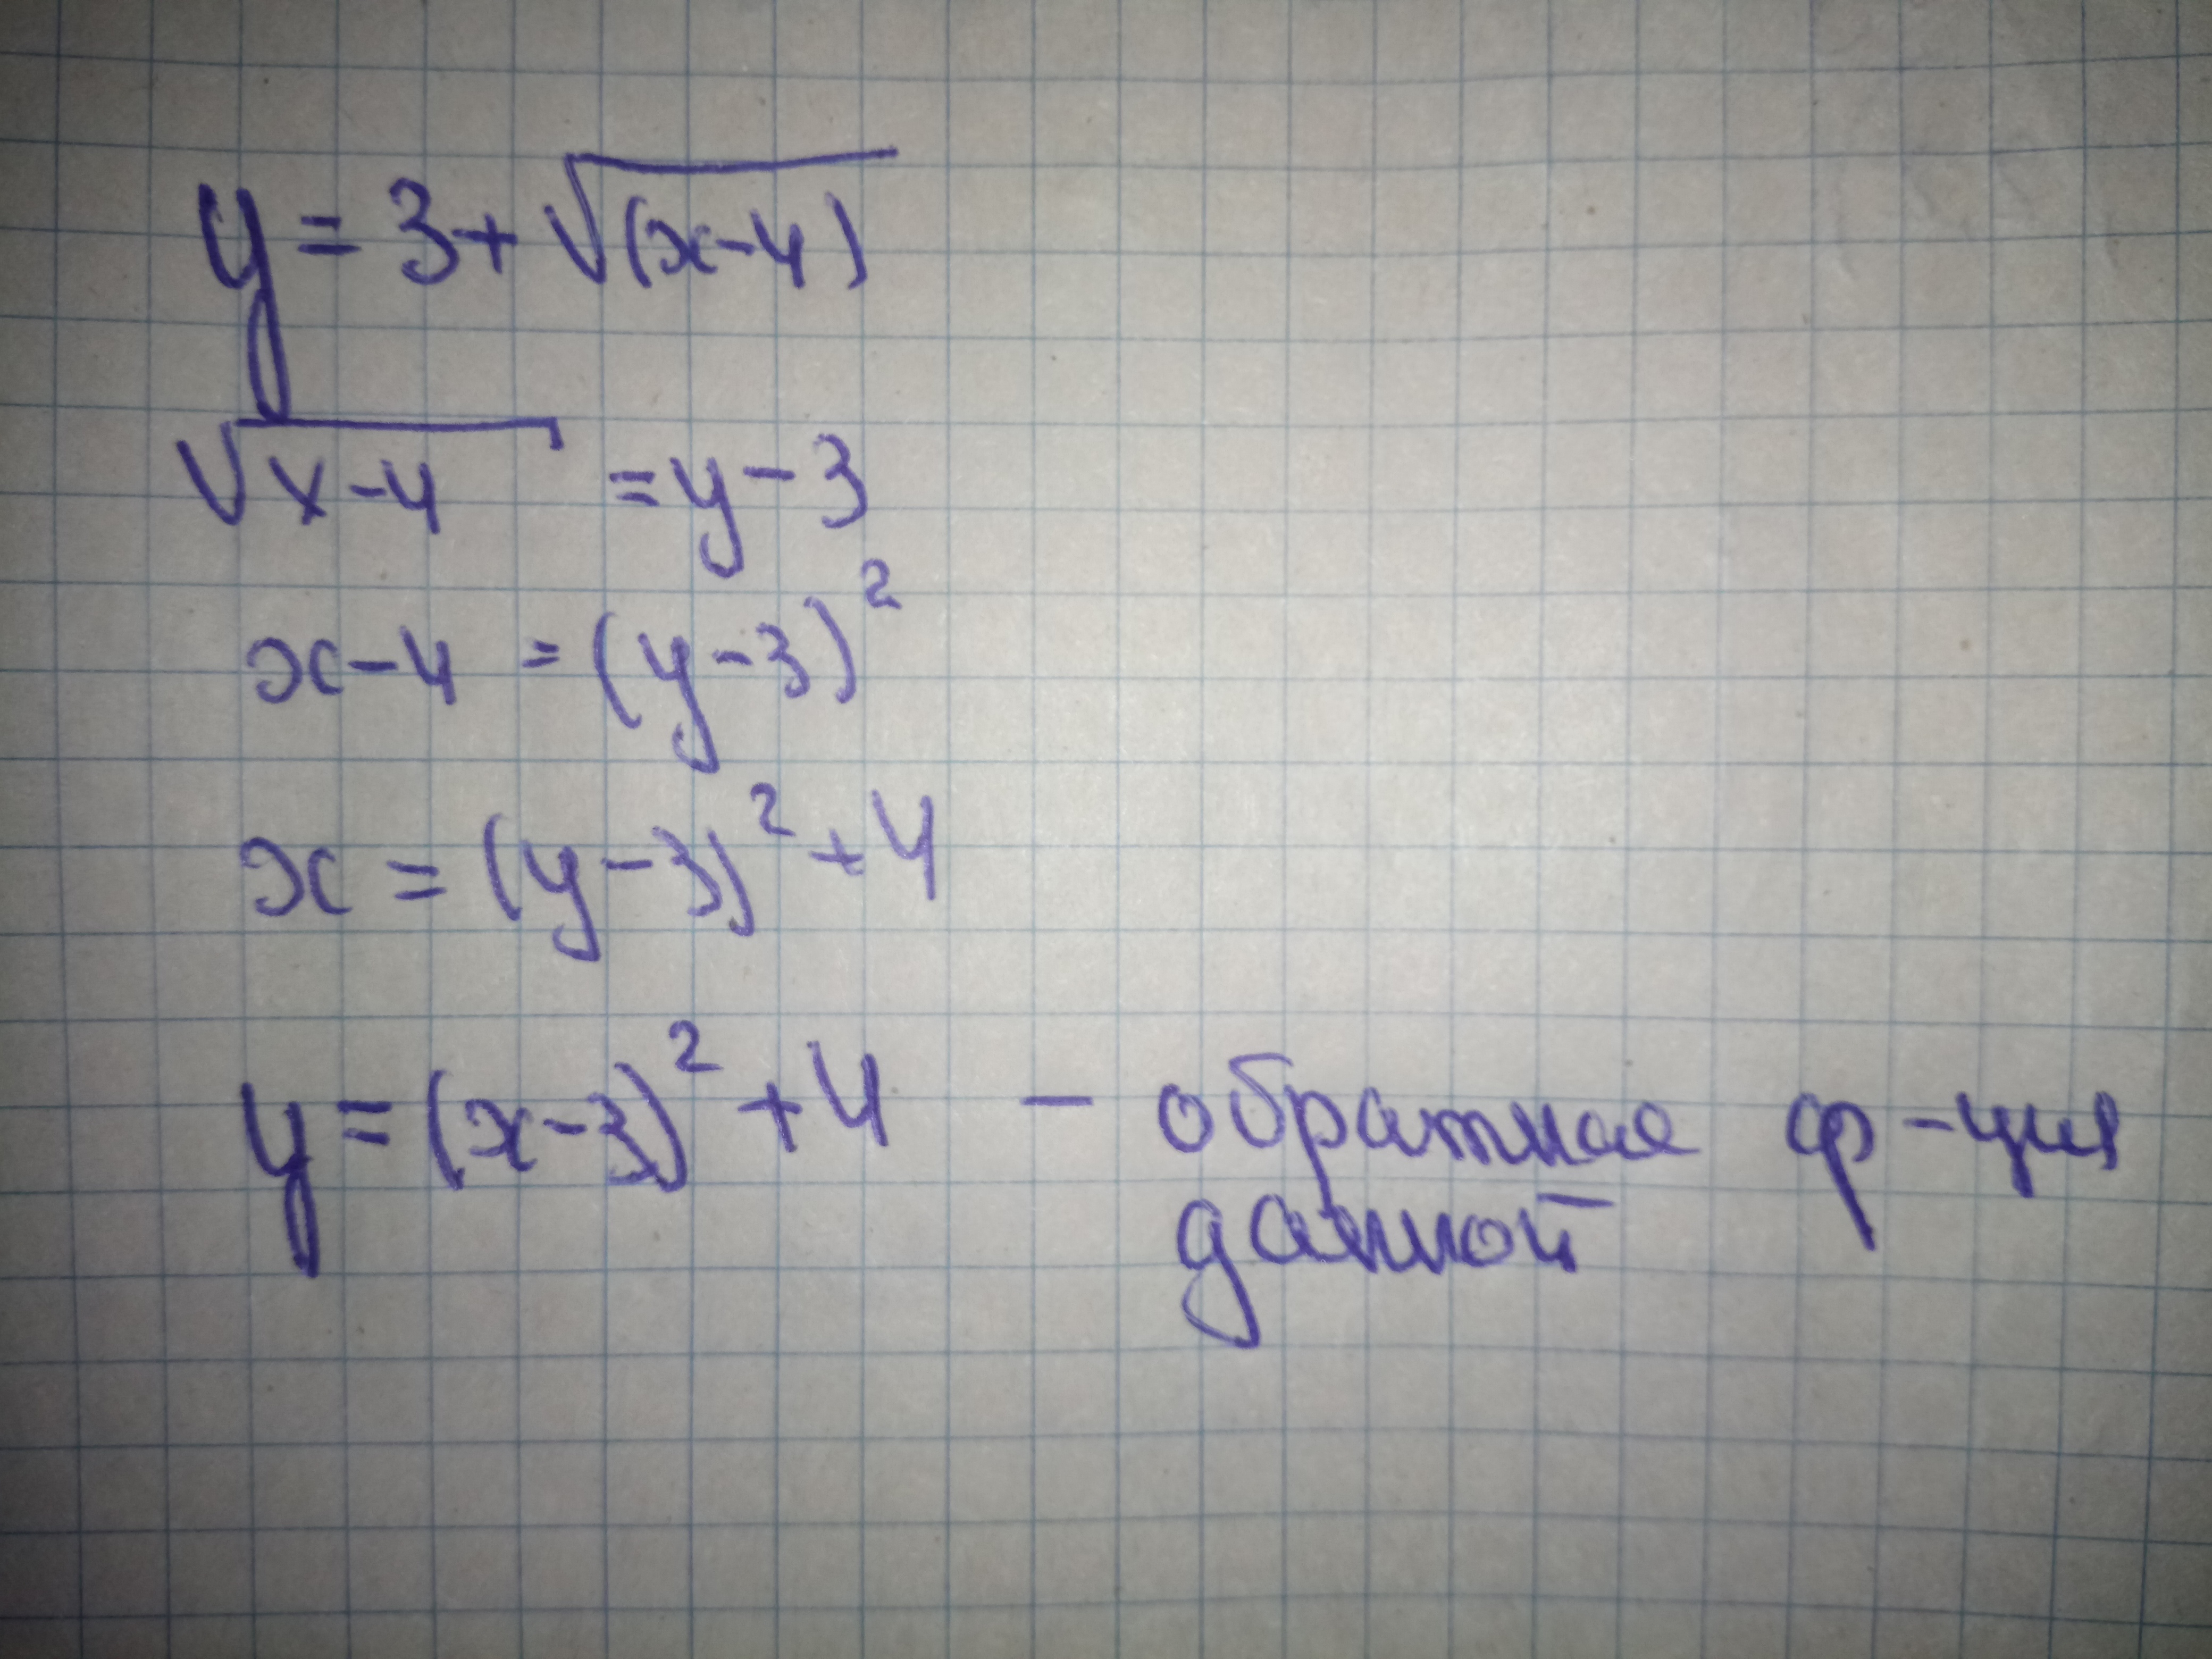 y = 3 + √(x-4)
√x-4 = y - 3
x - 4 = (y-3)²
x = (y-3)² + 4
y = (x-3)² + 4 - обратная ф-ция
данной